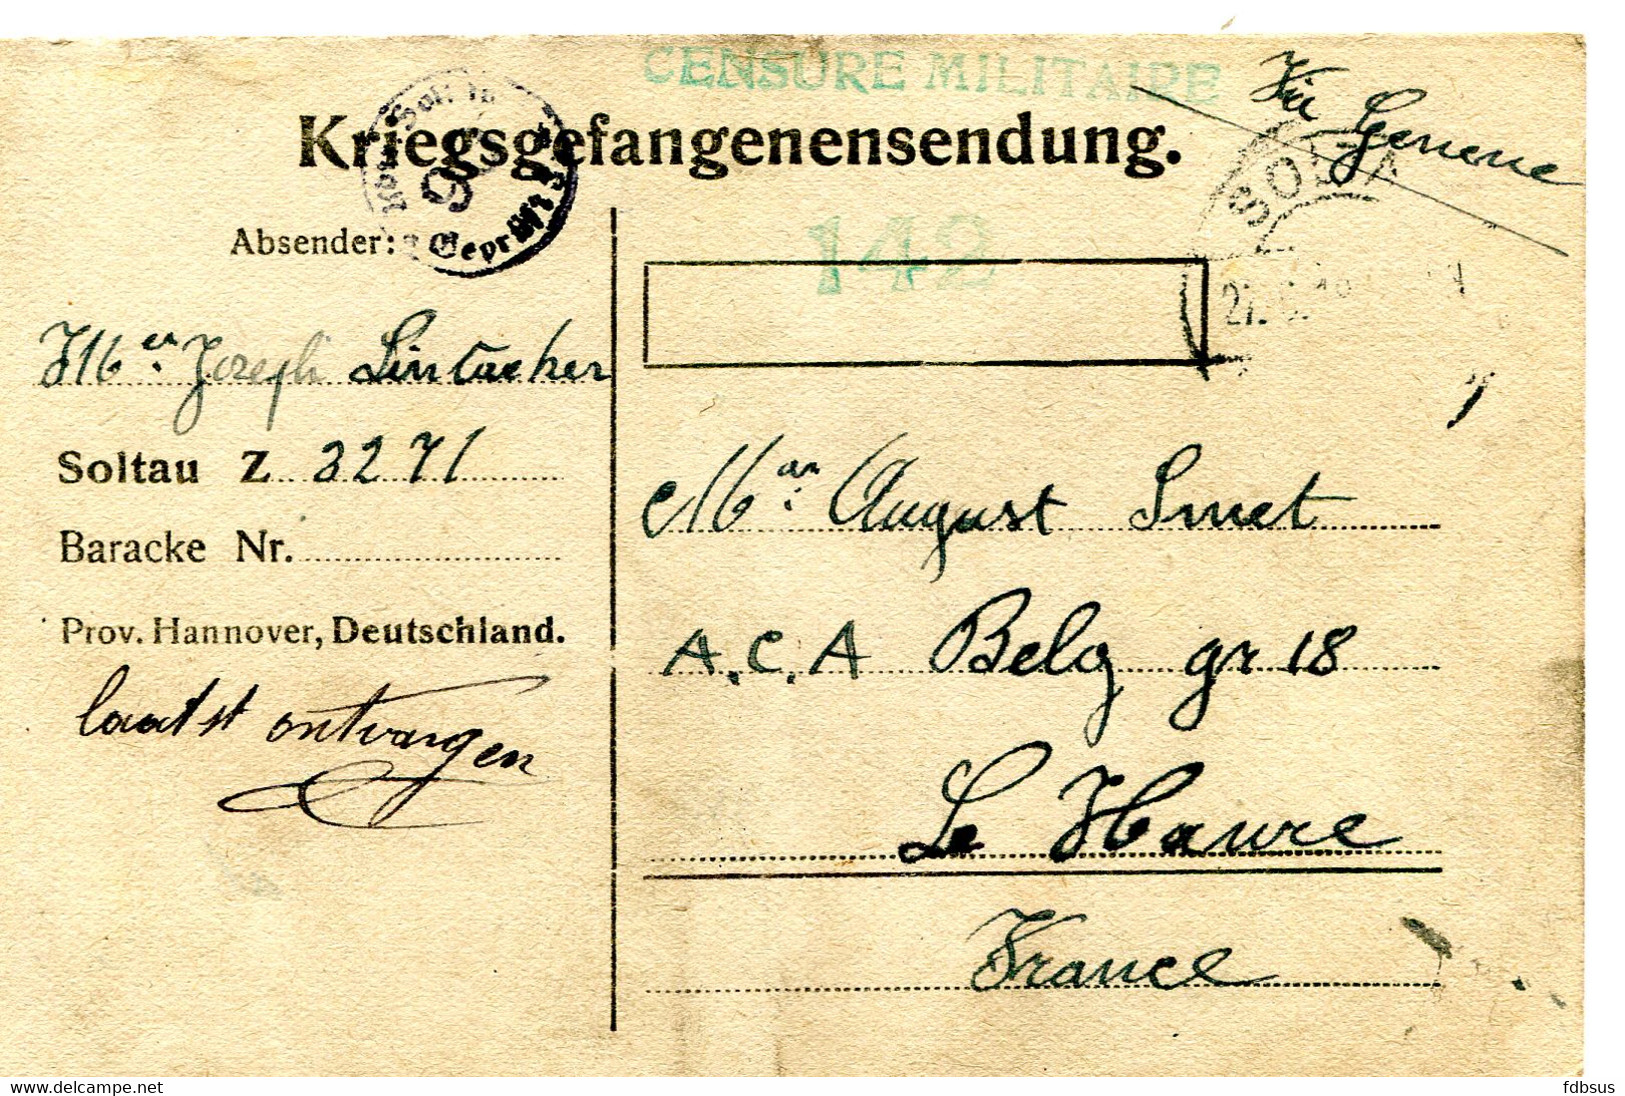 CENSURE MILITAIRE
Via Geneve
Kriegsgefangenensendung.
9
Geprüft
SOLTA
142
27.
Absender:
Joseph
Soltau Z 3271
Baracke Nr.
Prov. Hannover, Deutschland.
laatst ontvangen
August Smet
A.C.A Belg gr 18
Le Havre
France
www.delcampe.net
fdbsus